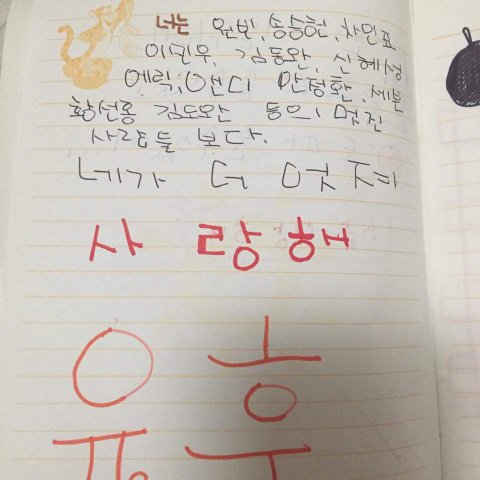 너는 원빈, 송승헌, 차인표
이민우, 김동완, 신혜성
에릭, 앤디 안정환, 세븐
황선홍 김도완 등의 멋진
사람들 보다.
네가 더 멋져
사랑해